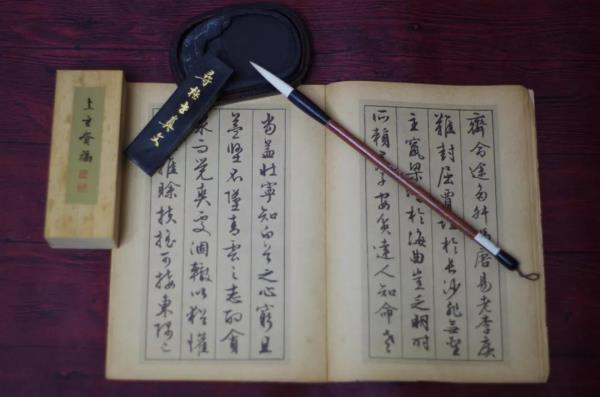 齊命途多舛馮唐易老李廣
難封屈賈誼於長沙非無聖
主竄梁於海曲豈乏明時
所賴君子安貧達人知命老
當益壯寧知白首之心窮且
益堅不墜青雲之志酌貪
泉而覺爽處涸轍以猶懽
雖賒扶搖可接東隅已